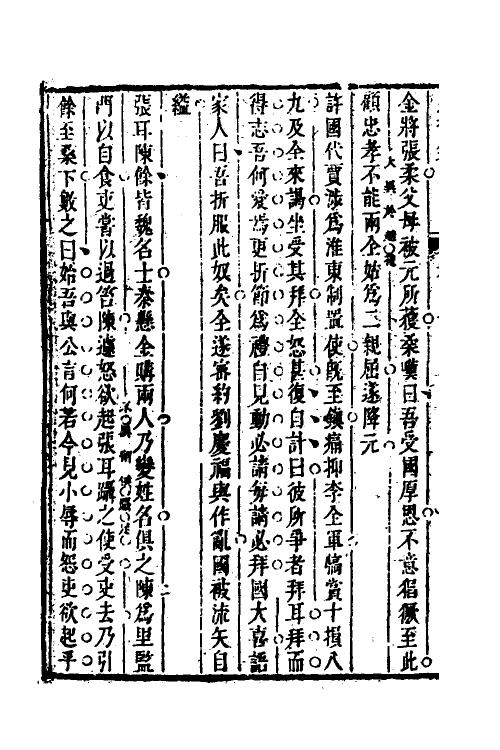 金將張柔父母被元所獲柔嘆曰吾受國厚恩不意猖獗至此
顧忠孝不能兩全姑爲二親屈遂降元
許國代賈涉爲淮東制置使旣至鎮痛抑李全軍犒賞十損八
九及全來謁坐受其拜全怒甚復自計曰彼所爭者拜耳拜而
得志吾何愛焉更折節爲禮自見動必請每請必拜國大喜語
家人曰吾折服此奴矣全遂密約劉慶福與作亂國被流矢自
縊
張耳陳餘皆魏名士秦懸金購兩人乃變姓名俱之陳爲里監
門以自食吏嘗以過笞陳遽怒欲起張耳躡之使受吏去乃引
餘至桑下數之曰始吾與公言何若今見小辱而怨吏欲起乎